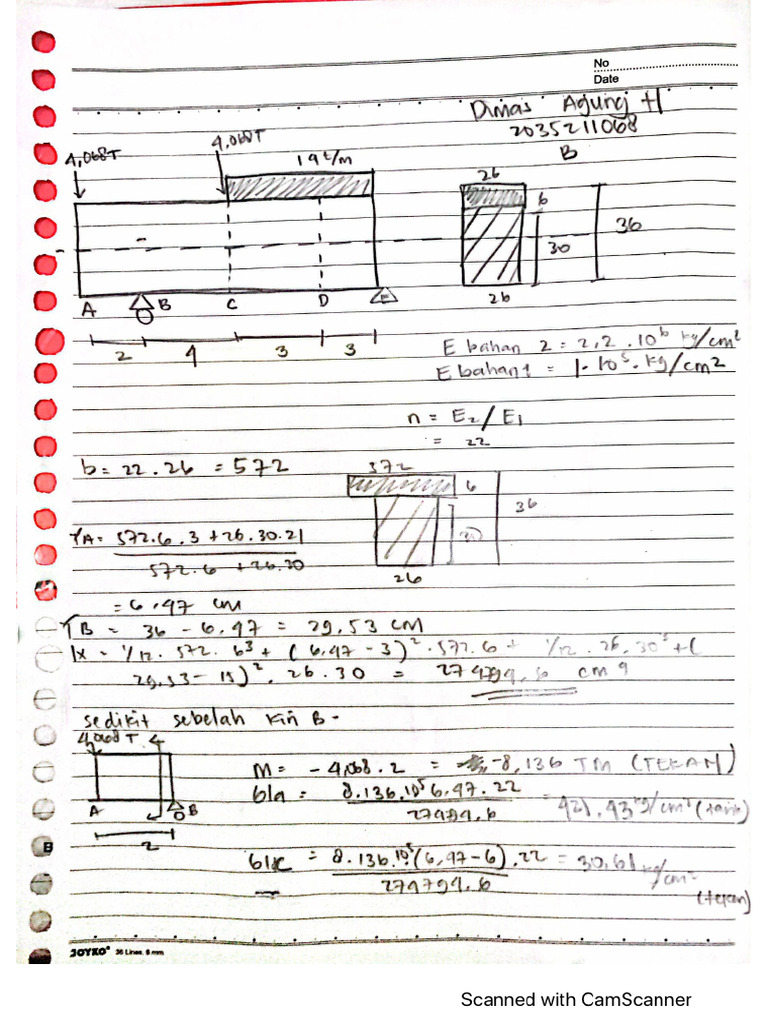 No
Date
Dimas Agung H
2035211068
B
4,068T
4,068T
19 t/m
26
6
30
36
26
A
B
C
D
E
2
4
3
3
E bahan 2 = 2,2 . 10⁶ kg/cm²
E bahan 1 = 1 . 10⁵ . kg/cm2
n = E2 / E1
= 22
b = 22 . 26 = 572
372
6
36
26
YA = 572.6.3 + 26.30.21
572.6 + 26.30
= 6,47 cm
YB = 36 - 6,47 = 29,53 cm
Ix = 1/12 . 572 . 6³ + (6,47 - 3)² . 572.6 + 1/12 . 26.30³ + (
29,53 - 15)² . 26.30 = 274794,6 cm 4
sedikit sebelah kiri B -
4,068 T
A
B
2
M = - 4,068 . 2 = -8,136 TM (TEKAN)
61a = 8.136.10⁵ 6.47.22 = 421,43 kg/cm² (tarik)
27494,6
= 8.136.10⁵ (6,47-6).22 = 30,61 kg/cm²
274794.6
(tekan)
B
JOYKO® 36 Lines, 8 mm
Scanned with CamScanner